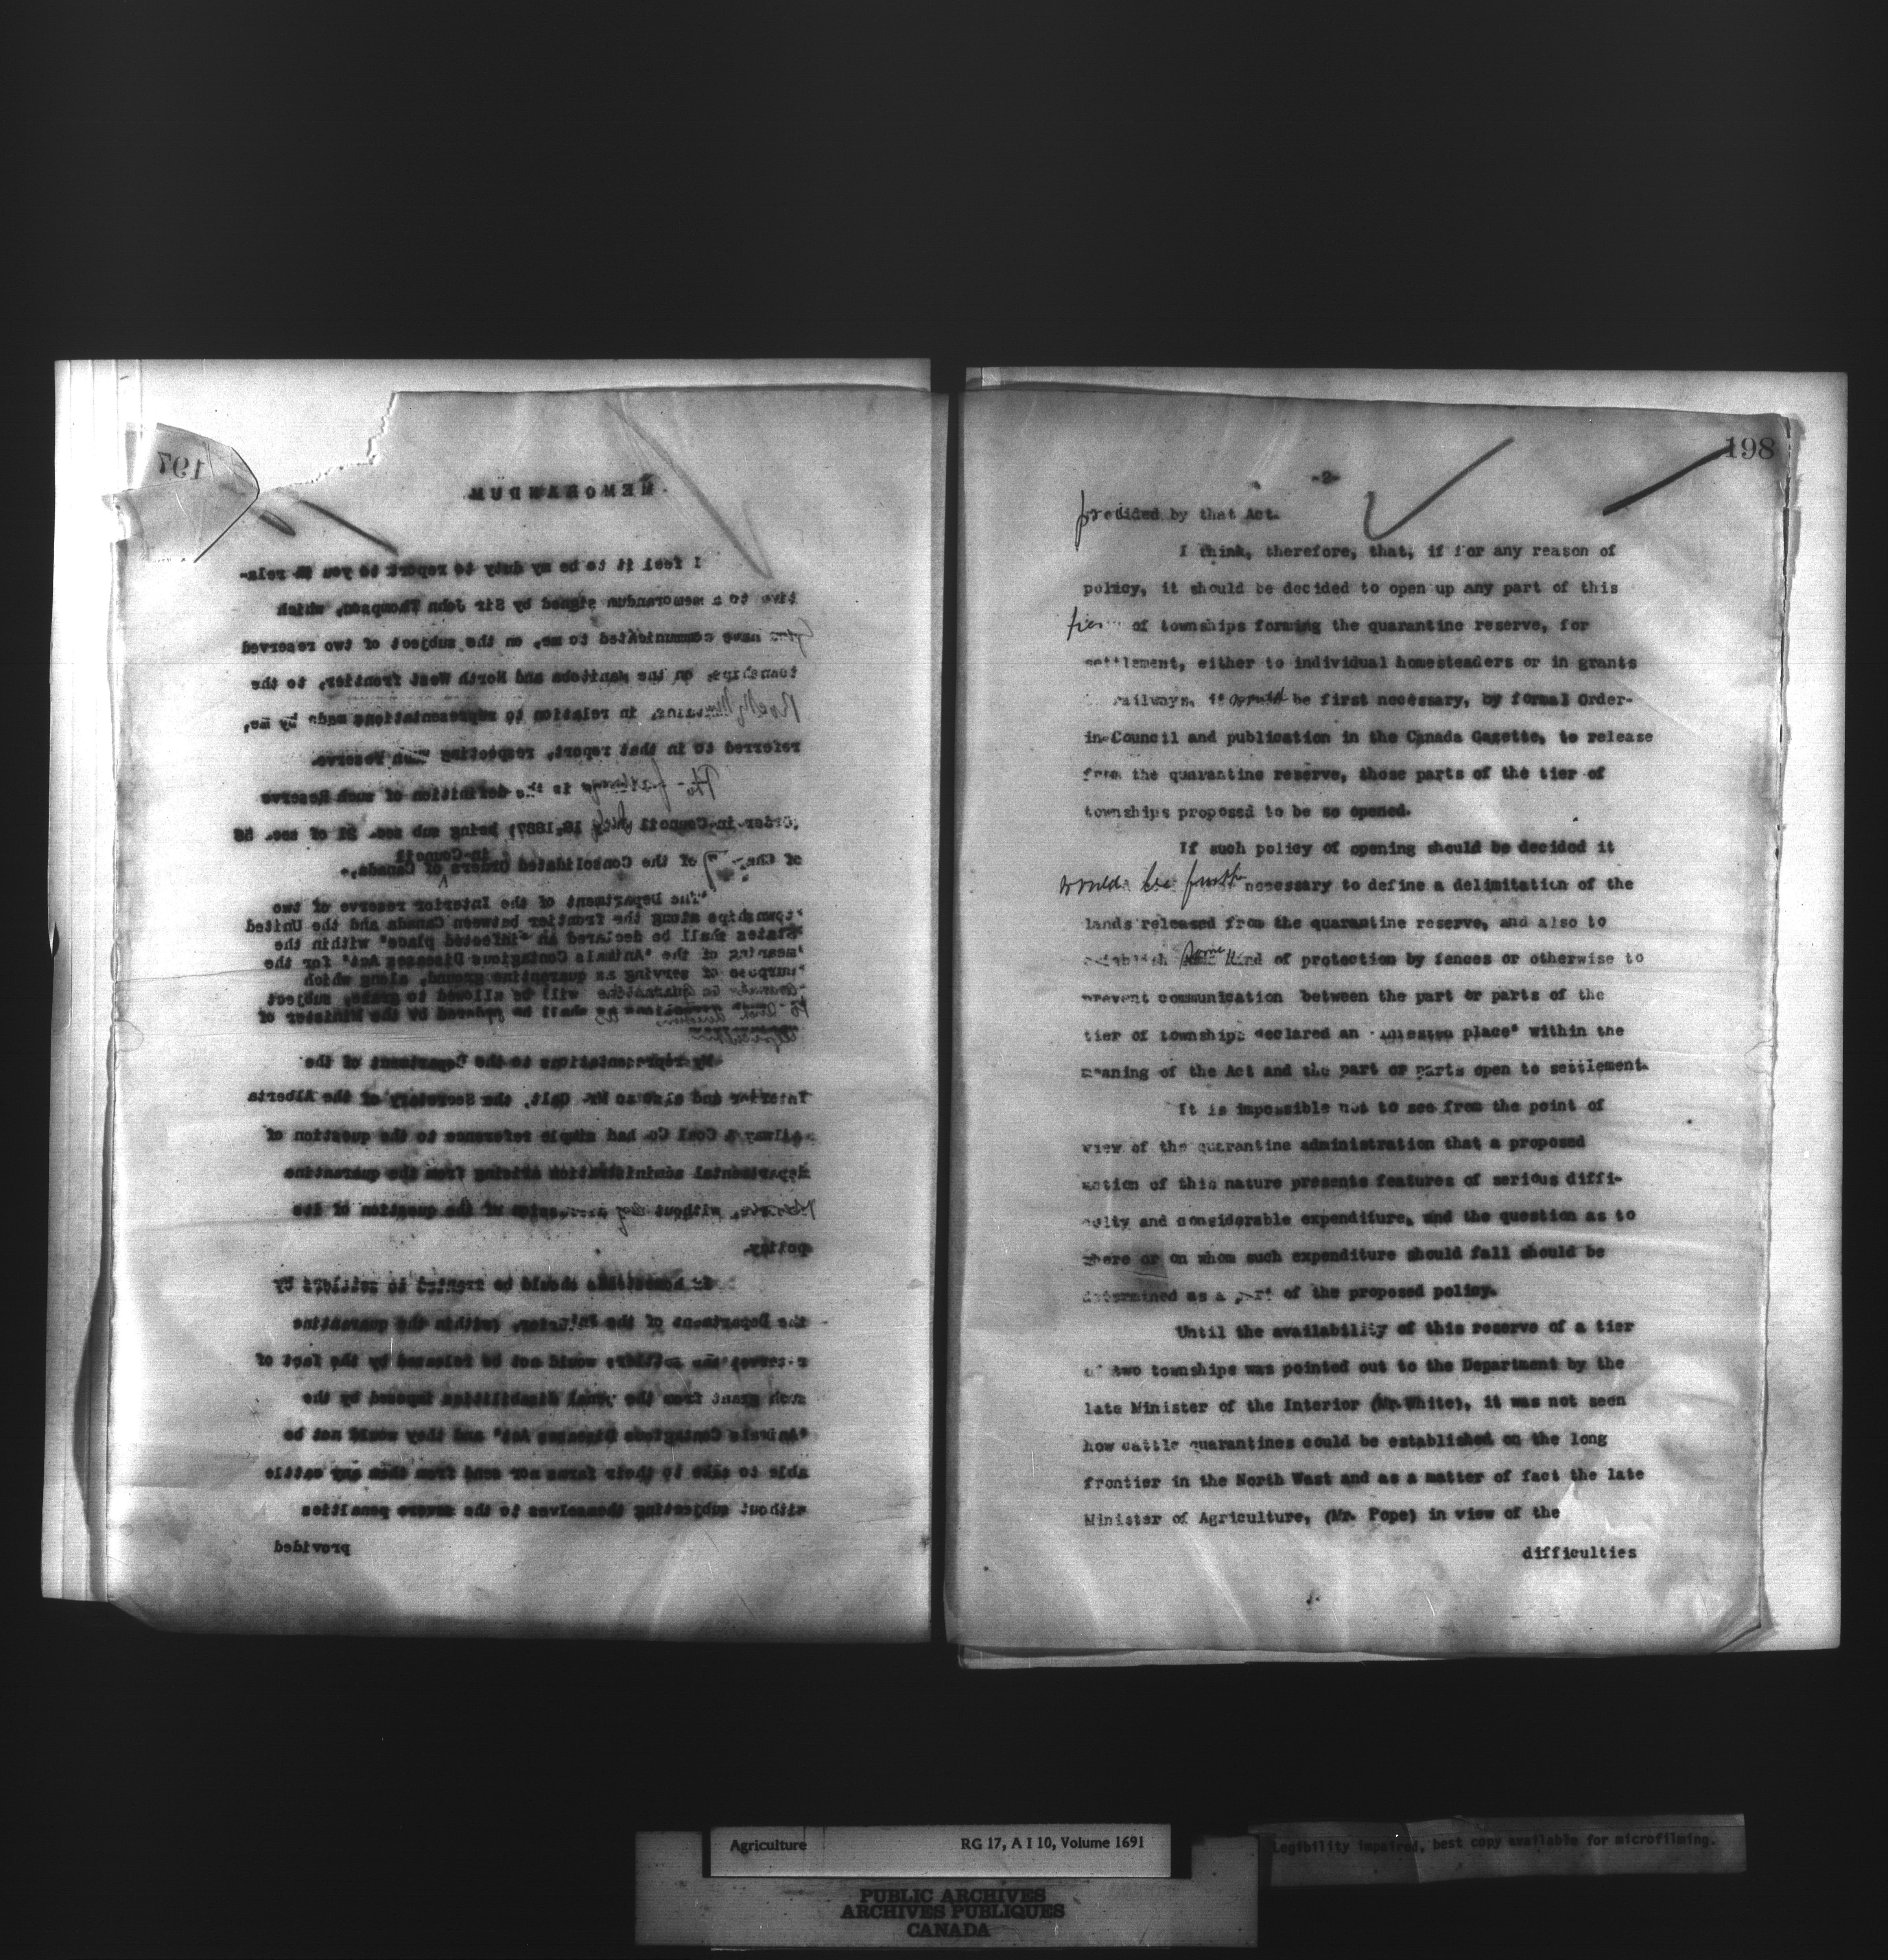 197
MEMORANDUM.
I feel it to be my duty to report to you rela-
tive to a memorandum signed by Sir John Thompson, which
you have communicated to me, on the subject of two reserved
townships, on the Manitoba and North West frontier, to the
in relation to representations made by me,
referred to in that report, respecting such Reserve.
The following is the definition of such Reserve
Order-in-Council July 1887; being sub sec. 21 of sec. 58
of Chap. 7 of the Consolidated Orders in-Council of Canada,-
"The Department of the Interior reserve of two
"townships along the frontier between Canada and the United
"States shall be declared an "infected place" within the
"meaning of the "Animals Contagious Diseases Act" for the
"purpose of serving as quarantine ground, along which
quarantine will be allowed to graze, subject
to such as shall be ordered by the Minister of
Agriculture
My representations to the Department of the
Interior and also to Mr. Galt, the Secretary of the Alberta
Railway & Coal Co. had simple reference to the question of
departmental administration arising from the quarantine
Reserve, without any of the question of its
policy.
If homesteads should be granted to settlers by
the Department of the Interior, (within the quarantine
reserve) the settlers would not be released by the fact of
such grant from the penal disabilities imposed by the
"Animals Contagious Diseases Act" and they would not be
able to take to their farms nor send from them any cattle
without subjecting themselves to the severe penalties
provided
198
-2-
provided by that Act.
I think, therefore, that, if for any reason of
policy, it should be decided to open up any part of this
tier of townships forming the quarantine reserve, for
settlement, either to individual homesteaders or in grants
railways, it would be first necessary, by formal Order-
in-Council and publication in the Canada Gazette, to release
from the quarantine reserve, those parts of the tier of
townships proposed to be so opened.
If such policy of opening should be decided it
would be further necessary to define a delimitation of the
lands released from the quarantine reserve, and also to
establish some kind of protection by fences or otherwise to
prevent communication between the part or parts of the
tier of townships declared an "infected place" within the
meaning of the Act and the part or parts open to settlement.
It is impossible not to see from the point of
view of the quarantine administration that a proposed
action of this nature presents features of serious diffi-
culty and considerable expenditure, and the question as to
where or on whom such expenditure should fall should be
determined as a part of the proposed policy.
Until the availability of this reserve of a tier
of two townships was pointed out to the Department by the
late Minister of the Interior (Mr. White), it was not seen
how cattle quarantines could be established on the long
frontier in the North West and as a matter of fact the late
Minister of Agriculture, (Mr. Pope) in view of the
difficulties
Agriculture RG 17, A I 10, Volume 1691
Legibility impaired, best copy available for microfilming.
PUBLIC ARCHIVES
ARCHIVES PUBLIQUES
CANADA